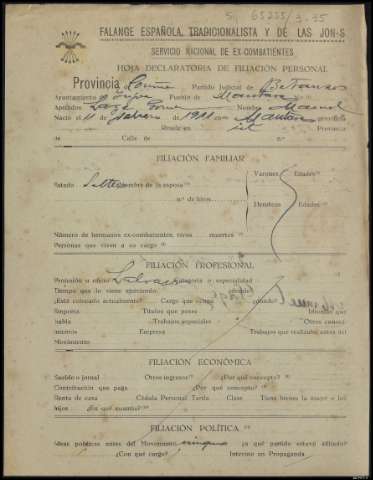 65255/3.35
FALANGE ESPAÑOLA TRADICIONALISTA Y DE LAS JON-S
SERVICIO NACIONAL DE EX-COMBATIENTES
HOJA DECLARATORIA DE FILIACION PERSONAL
Provincia Coruña Partido Judicial de Betanzos
Ayuntamiento Pueblo de
Apellidos Nombre Manuel
Nacio el 11 de febrero de 1911 en provincia
de Reside en id Provincia
de Calle de N.º
FILIACIÓN FAMILIAR
Varones Edades
Estado Soltero nombre de la esposa
n.º de hijos
Hembras Edades
Número de hermanos ex-combatientes, vivos muertos
Personas que viven a su cargo
FILIACIÓN PROFESIONAL
Profesión u oficio Labrador categoría o especialidad
Tiempo que lo viene ejerciendo
¿Está colocado actualmente? Cargo que ocupa
Empresa Títulos que posee Idiomas que
habla Trabajos especiales Otros conoci-
mientos Empresa Trabajos que realizaba antes del
Movimiento
FILIACIÓN ECONÓMICA
Sueldo o jornal Otros ingresos ¿Por qué concepto?
Contribución que paga ¿Por qué concepto?
Renta de casa Cédula Personal Tarifa Clase Tiene bienes la mujer o los
hijos ¿En qué cuantía?
FILIACIÓN POLÍTICA
Ideas políticas antes del Movimiento ninguna ¿a qué partido estuvo afiliado?
¿Con qué cargo? Intervino en Propaganda